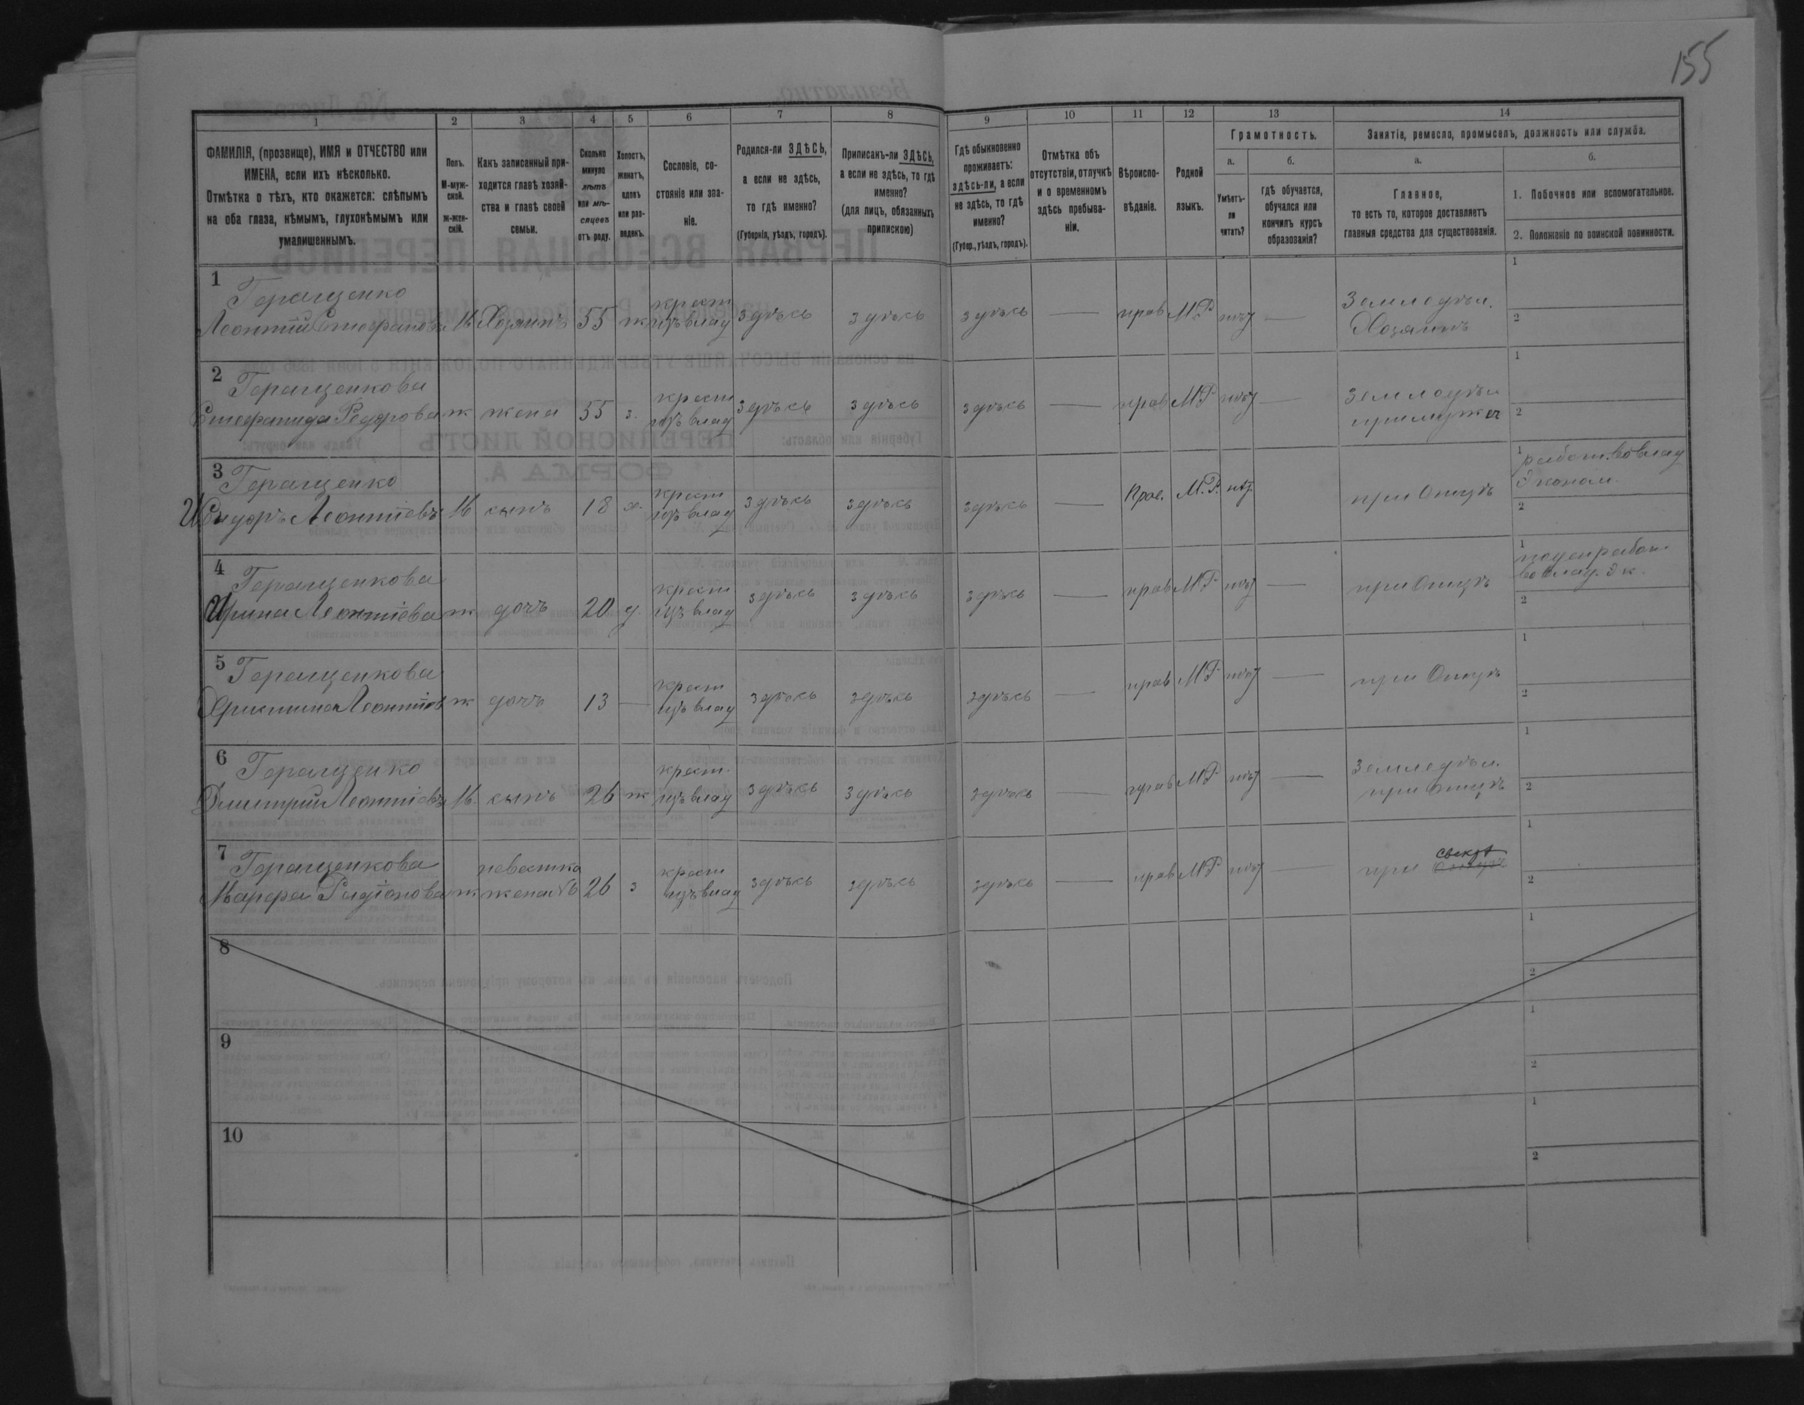 155
1 2 3 4 5 6 7 8 9 10 11 12 13 14
ФАМИЛІЯ, (прозвище), ИМЯ и ОТЧЕСТВО или
ИМЕНА, если ихъ нѣсколько.
Отмѣтка о тѣхъ, кто окажется: слѣпымъ
на оба глаза, нѣмымъ, глухонѣмымъ или
умалишеннымъ.
Полъ.
М-муж-
ской.
ж-жен-
скій.
Какъ записанный при-
ходится главѣ хозяй-
ства и главѣ своей
семьи.
Сколько
минуло
лѣтъ
или мѣ-
сяцевъ
отъ роду.
Холостъ,
женатъ,
вдовъ
или раз-
веденъ.
Сословіе, со-
стояніе или зва-
ніе.
Родился-ли ЗДѢСЬ,
а если не здѣсь,
то гдѣ именно?
(Губернія, уѣздъ, городъ).
Приписанъ-ли ЗДѢСЬ,
а если не здѣсь, то гдѣ
именно?
(для лицъ, обязанныхъ
припискою)
Гдѣ обыкновенно
проживаетъ:
здѣсь-ли, а если
не здѣсь, то гдѣ
именно?
(Губер., уѣздъ, городъ).
Отмѣтка объ
отсутствіи, отлучкѣ
и о временномъ
здѣсь пребыва-
ніи.
Вѣроиспо-
вѣданіе.
Родной
языкъ.
Грамотность.
а.
Умѣетъ-
ли
читать?
б.
гдѣ обучается,
обучался или
кончилъ курсъ
образованія?
Занятіе, ремесло, промыселъ, должность или служба.
а.
Главное,
то есть то, которое доставляетъ
главныя средства для существованія.
б.
1. Побочное или вспомогательное.
2. Положеніе по воинской повинности.
1
Геращенко
Леонтій Стефановъ М. Хозяинъ 55 ж крест
изъ влад здѣсь здѣсь здѣсь — прав М.Р. нѣт — Земледѣл.
Хозяинъ
1
2
2
Геращенкова
Стефанида Федорова ж жена 55 з. крест
изъ влад здѣсь здѣсь здѣсь — прав М.Р. нѣт — земледѣл
при мужѣ
1
2
3
Геращенко
Сидоръ Леонтіевъ М сынъ 18 х. крест
изъ влад здѣсь здѣсь здѣсь — Прав. М.Р. нѣт при Отцѣ
1 работ. во влад
Эконом.
2
4
Геращенкова
Ирина Леонтіева ж дочь 20 д. крест
изъ влад здѣсь здѣсь здѣсь — прав М.Р. нѣт — при Отцѣ
1 поден работ
во влад. Эк.
2
5
Геращенкова
Христина Леонтіев ж дочь 13 — крест
изъ влад здѣсь здѣсь здѣсь — прав М.Р. нѣт — при Отцѣ
1
2
6
Геращенко
Дмитрій Леонтіевъ М. сынъ 26 ж крест.
изъ влад здѣсь здѣсь здѣсь — прав М.Р. нѣт — Земледѣл.
при Отцѣ
1
2
7
Геращенкова
Марфа Родіонова ж невестка
жена №6 26 з крест
изъ влад здѣсь здѣсь здѣсь — прав М.Р. нѣт — при свекрѣ
1
2
8
1
2
9
1
2
10
1
2